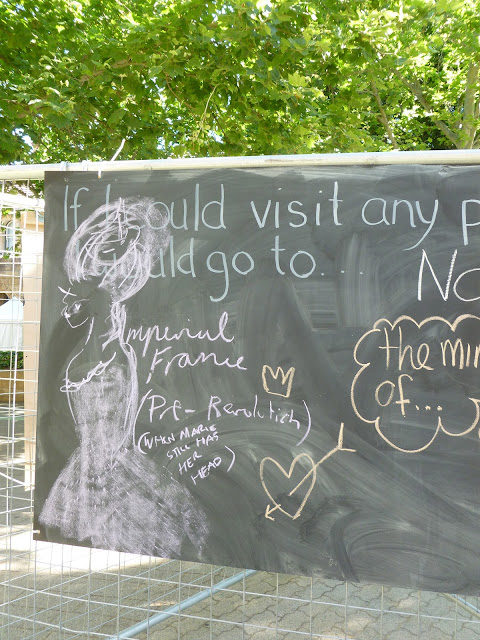 If I could visit any p
I would go to...
No
Imperial
France
(Pre-Revolution)
(WHEN MARIE
STILL HAS
HER
HEAD)
the min
of...